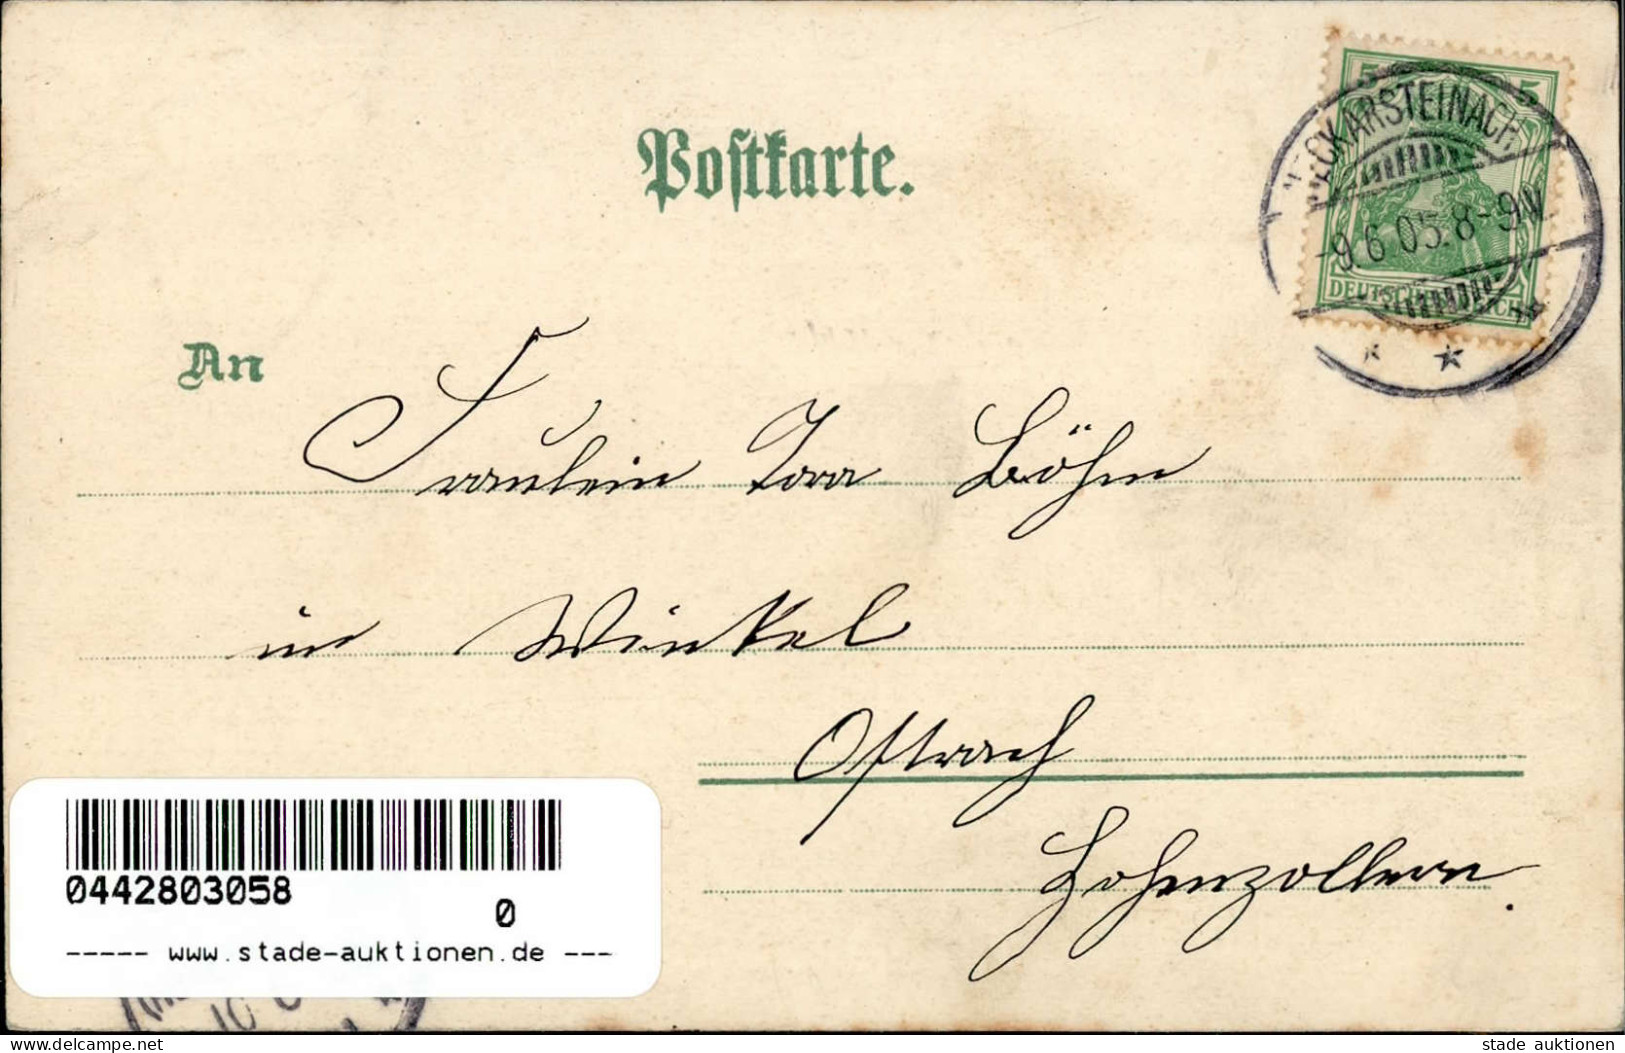 Postkarte.
5 5
NECKARSTEINACH.
-9.6.05.8-9N
DEUTSCHES REICH
An
Fräulein
Böhm
in Winkel
Ostrach
Hohenzollern.
0442803058
0
----- www.stade-auktionen.de ---
10
www.delcampe.net
stade auktionen